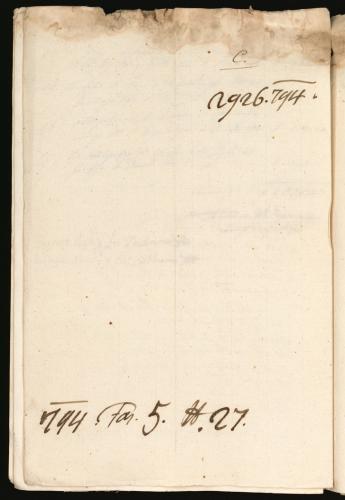 C.
2926.794.
794. Fas. 5. H. 27.